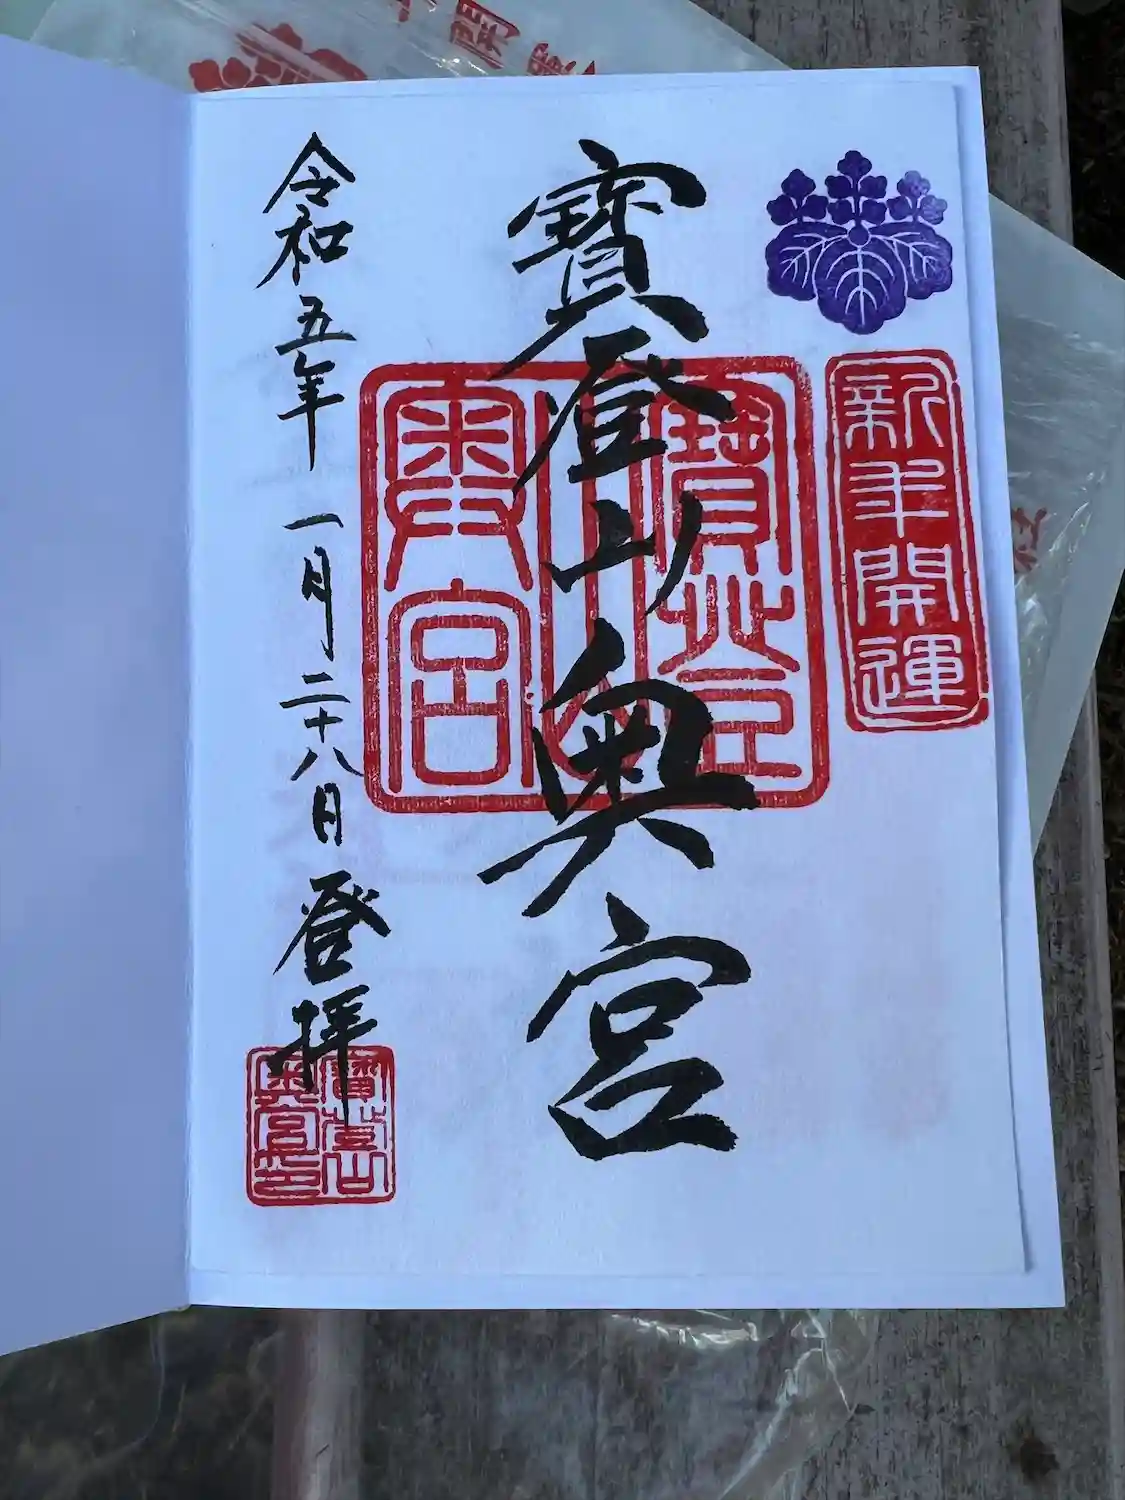 新年開運
寶登山奥宮
寶登山奥宮
令和五年一月二十八日登拝
寶登山奥宮印